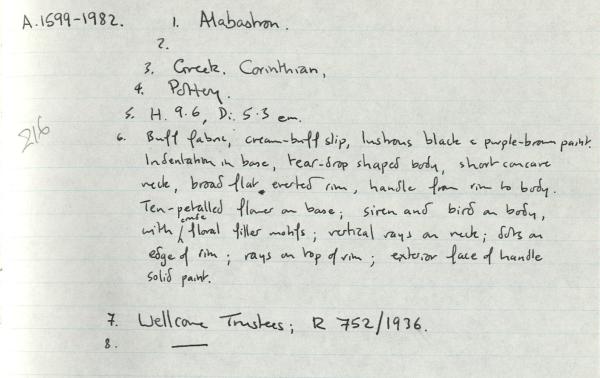 A.1599-1982. 1. Alabastron.
2.
3. Greek. Corinthian,
4. Pottery.
5. H. 9.6, D. 5.3 cm.
216
6. Buff fabric, cream-buff slip, lustrous black c purple-brown paint.
Indentation in base, tear-drop shaped body, short concave
neck, broad flat everted rim, handle from rim to body.
Ten-petalled flower on base; siren and bird on body,
with crude floral filler motifs; vertical rays on neck; dots on
edge of rim; rays on top of rim; exterior face of handle
solid paint.
7. Wellcome Trustees; R 752/1936.
8. —